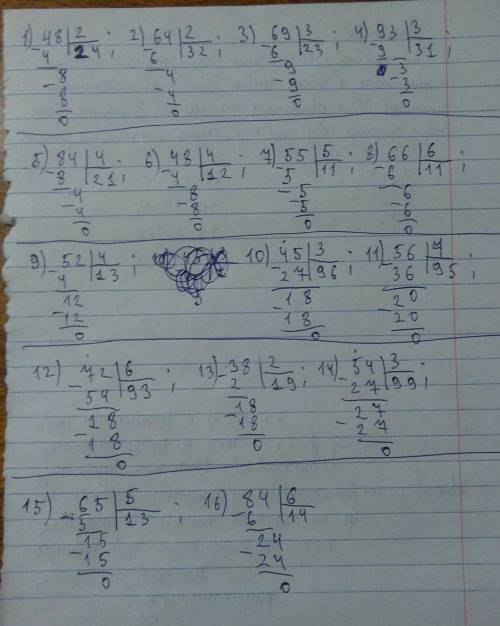 1) 48|2 ; 2) 64|2 ; 3) 69|3 ; 4) 93|3 ;
-4 |24 -6 |32 -6 |23 -9 |31
-8 -4 -9 -3
8 4 9 3
0 0 0 0
5) 84|4 ; 6) 48|4 ; 7) 55|5 ; 8) 66|6 ;
-8 |21 -4 |12 -5 |11 -6 |11
-4 -8 -5 -6
4 8 5 6
0 0 0 0
9) 52|4 ; 10) 45|3 ; 11) 56|4 ;
-4 |13 -27 |96 -36 |95
12 18 20
-12 -18 -20
0 0 0
12) 72|6 ; 13) 38|2 ; 14) 54|3 ;
-54 |93 -2 |19 -27 |99
18 18 27
-18 -18 -27
0 0 0
15) 65|5 ; 16) 84|6
-5 |13 -6 |14
15 24
-15 -24
0 0